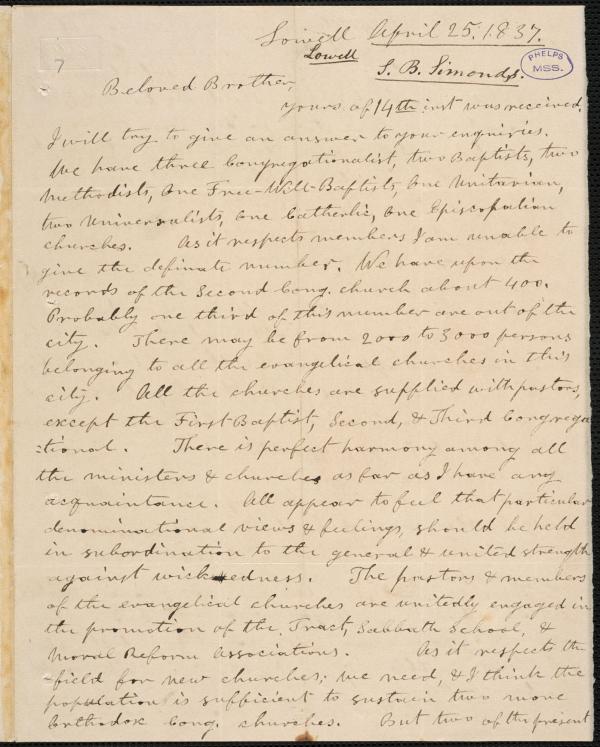 Lowell April 25. 1837.
Lowell
S. B. Simonds.
PHELPS
MSS.
7
Beloved Brother,
Yours of 14th inst was received.
I will try to give an answer to your enquiries.
We have three Congregationalist, two Baptists, two
Methodists, one Free-Will-Baptists, one Unitarian,
two Universalists, one Catherlic, one Episcopalian
churches. As it respects members I am unable to
give the definate number. We have upon the
records of the Second Cong. church about 400.
Probably one third of this number are out of the
city. There may be from 2000 to 3000 persons
belonging to all the evangelical churches in this
city. All the churches are supplied with pastors,
except the First Baptist, Second, & Third Congrega
=tional. There is perfect harmony among all
the ministers & churches as far as I have any
acquaintance. All appear to feel that particular
denominational views & feelings, should be held
in subordination to the general & united strength
against wickedness. The pastors & members
of the evangelical churches are unitedly engaged in
the promotion of the Tract, Sabbath School, &
Moral Reform Associations. As it respects the
field for new churches; we need, & I think the
population is sufficient to sustain two more
Orthodox Cong. churches. But two of the present